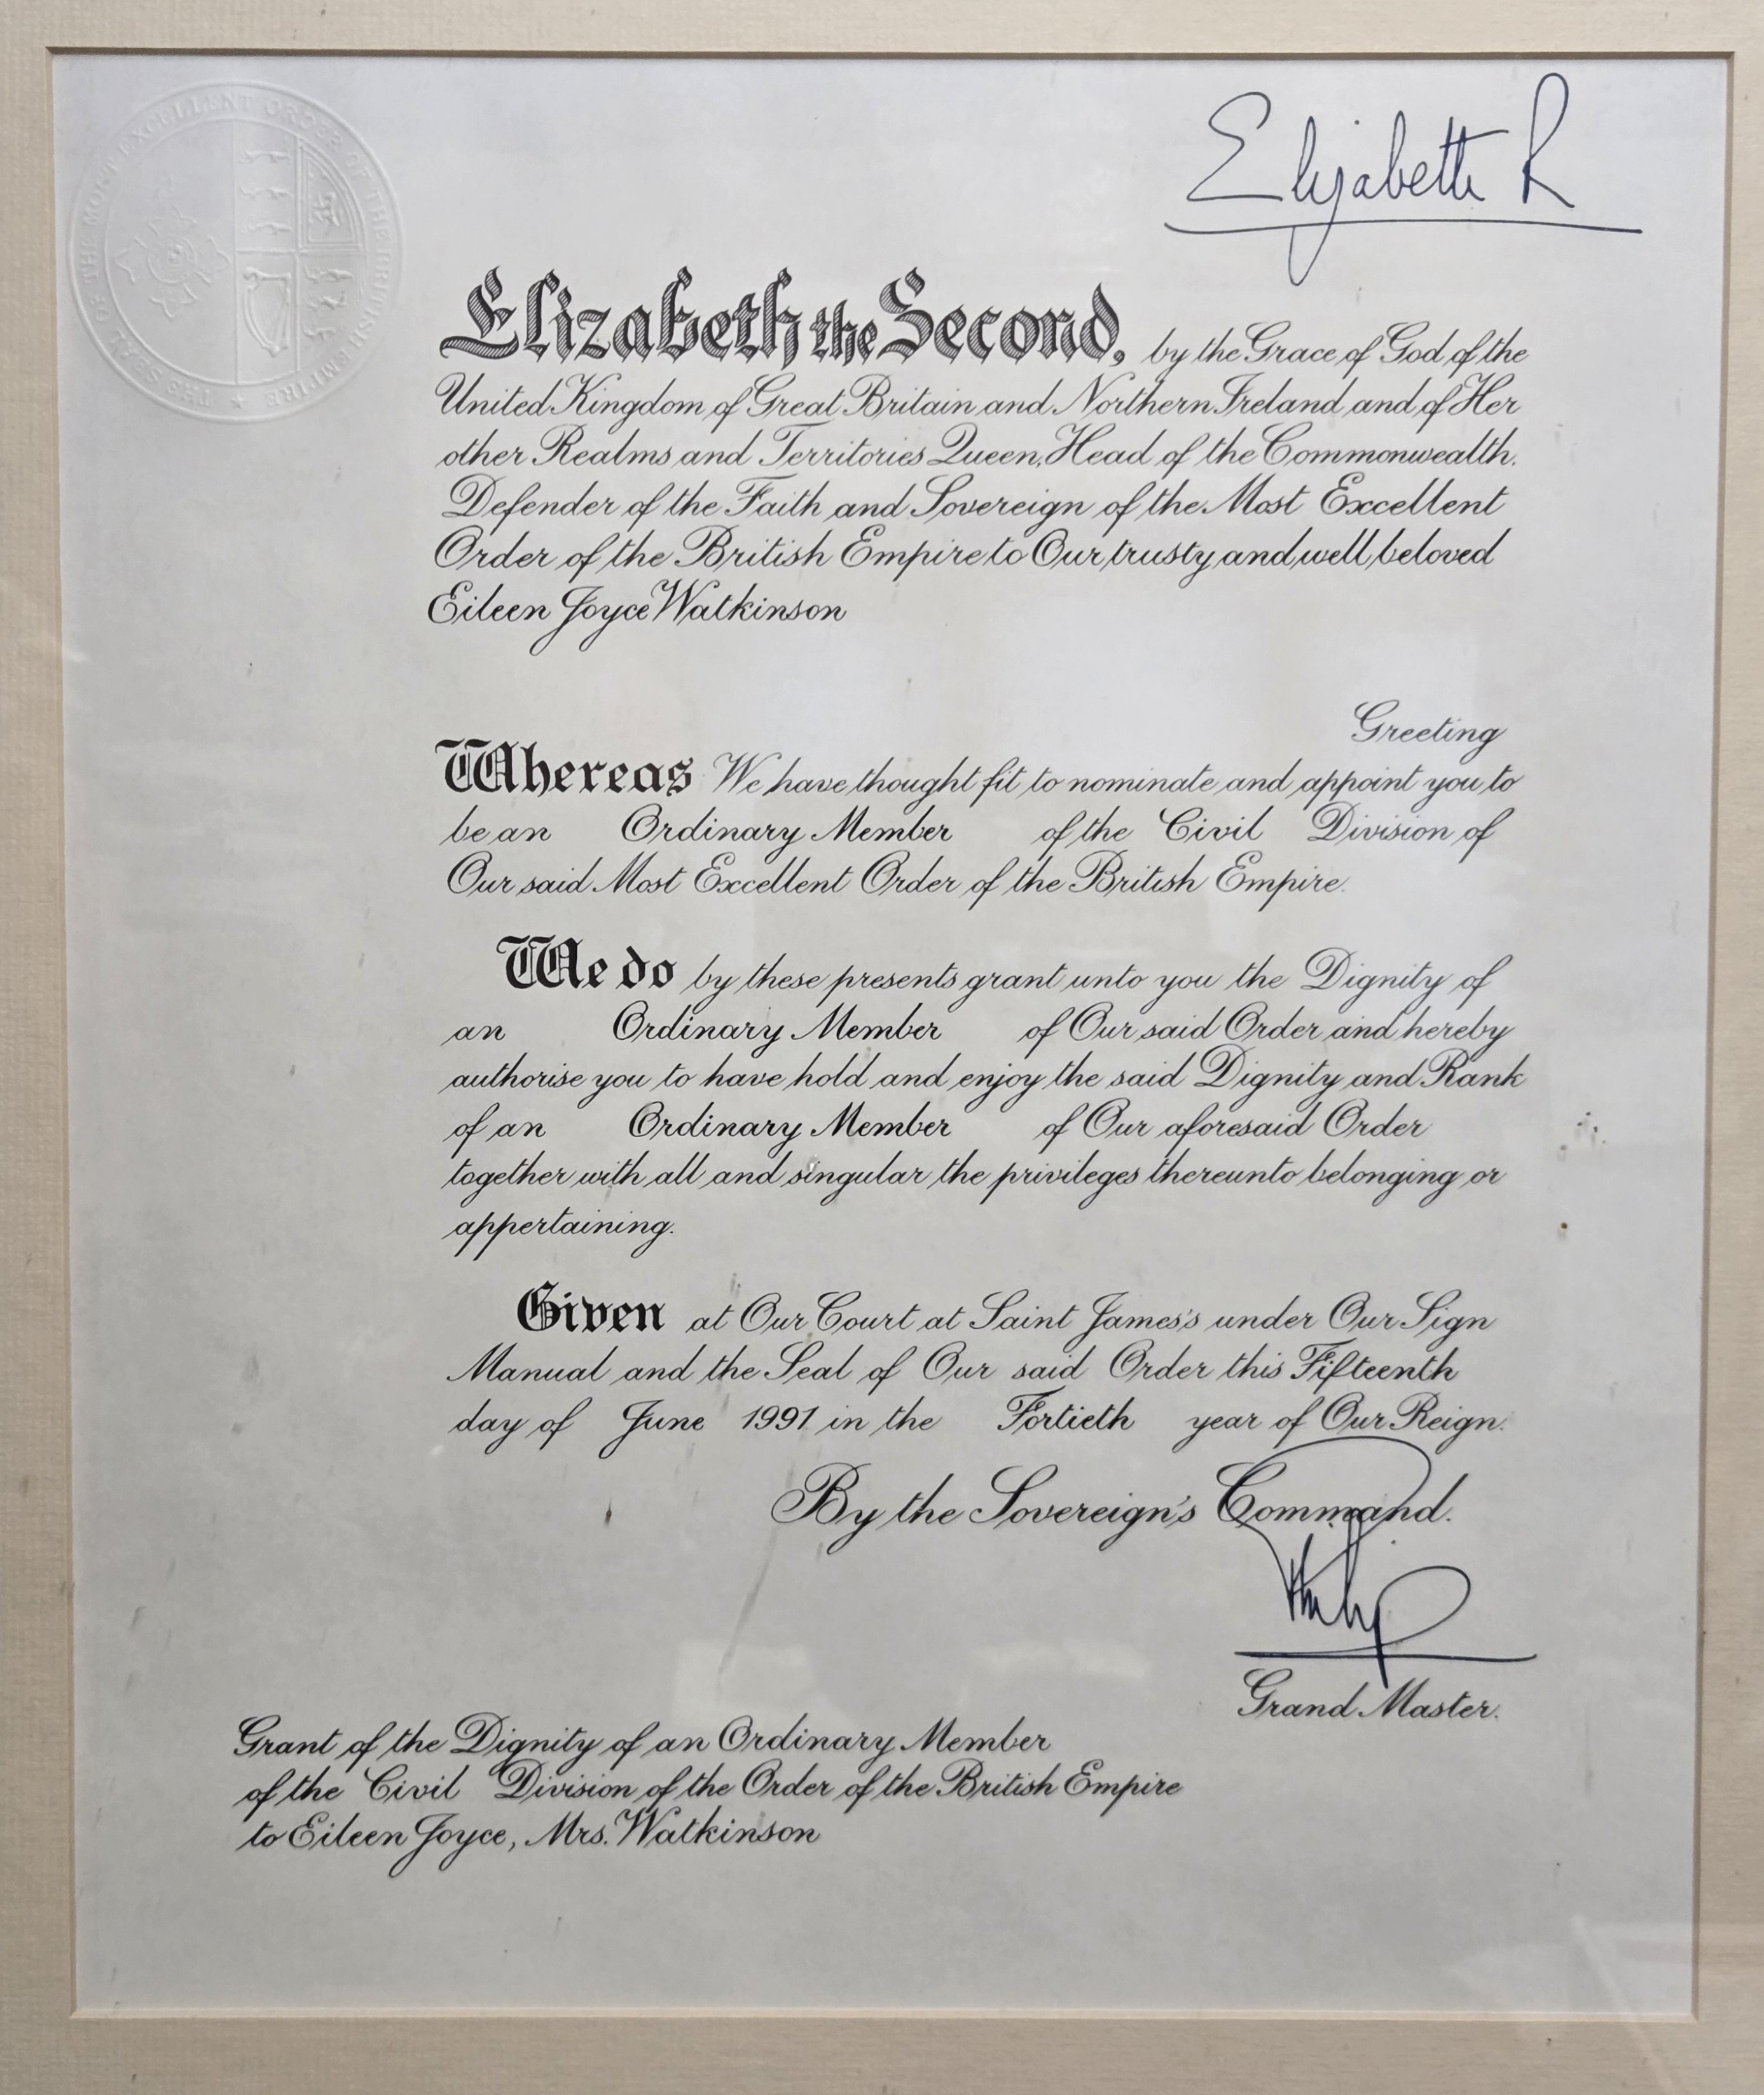 THE SEAL OF THE MOST EXCELLENT ORDER OF THE BRITISH EMPIRE ★
Elizabeth R
Elizabeth the Second, by the Grace of God of the
United Kingdom of Great Britain and Northern Ireland and of Her
other Realms and Territories Queen, Head of the Commonwealth.
Defender of the Faith and Sovereign of the Most Excellent
Order of the British Empire to Our trusty and well beloved
Eileen Joyce Watkinson
Greeting
Whereas We have thought fit to nominate and appoint you to
be an Ordinary Member of the Civil Division of
Our said Most Excellent Order of the British Empire.
We do by these presents grant unto you the Dignity of
an Ordinary Member of Our said Order and hereby
authorise you to have hold and enjoy the said Dignity and Rank
of an Ordinary Member of Our aforesaid Order
together with all and singular the privileges thereunto belonging or
appertaining.
Given at Our Court at Saint James's under Our Sign
Manual and the Seal of Our said Order this Fifteenth
day of June 1991 in the Fortieth year of Our Reign.
By the Sovereign's Command.
Philip
Grand Master.
Grant of the Dignity of an Ordinary Member
of the Civil Division of the Order of the British Empire
to Eileen Joyce, Mrs. Watkinson